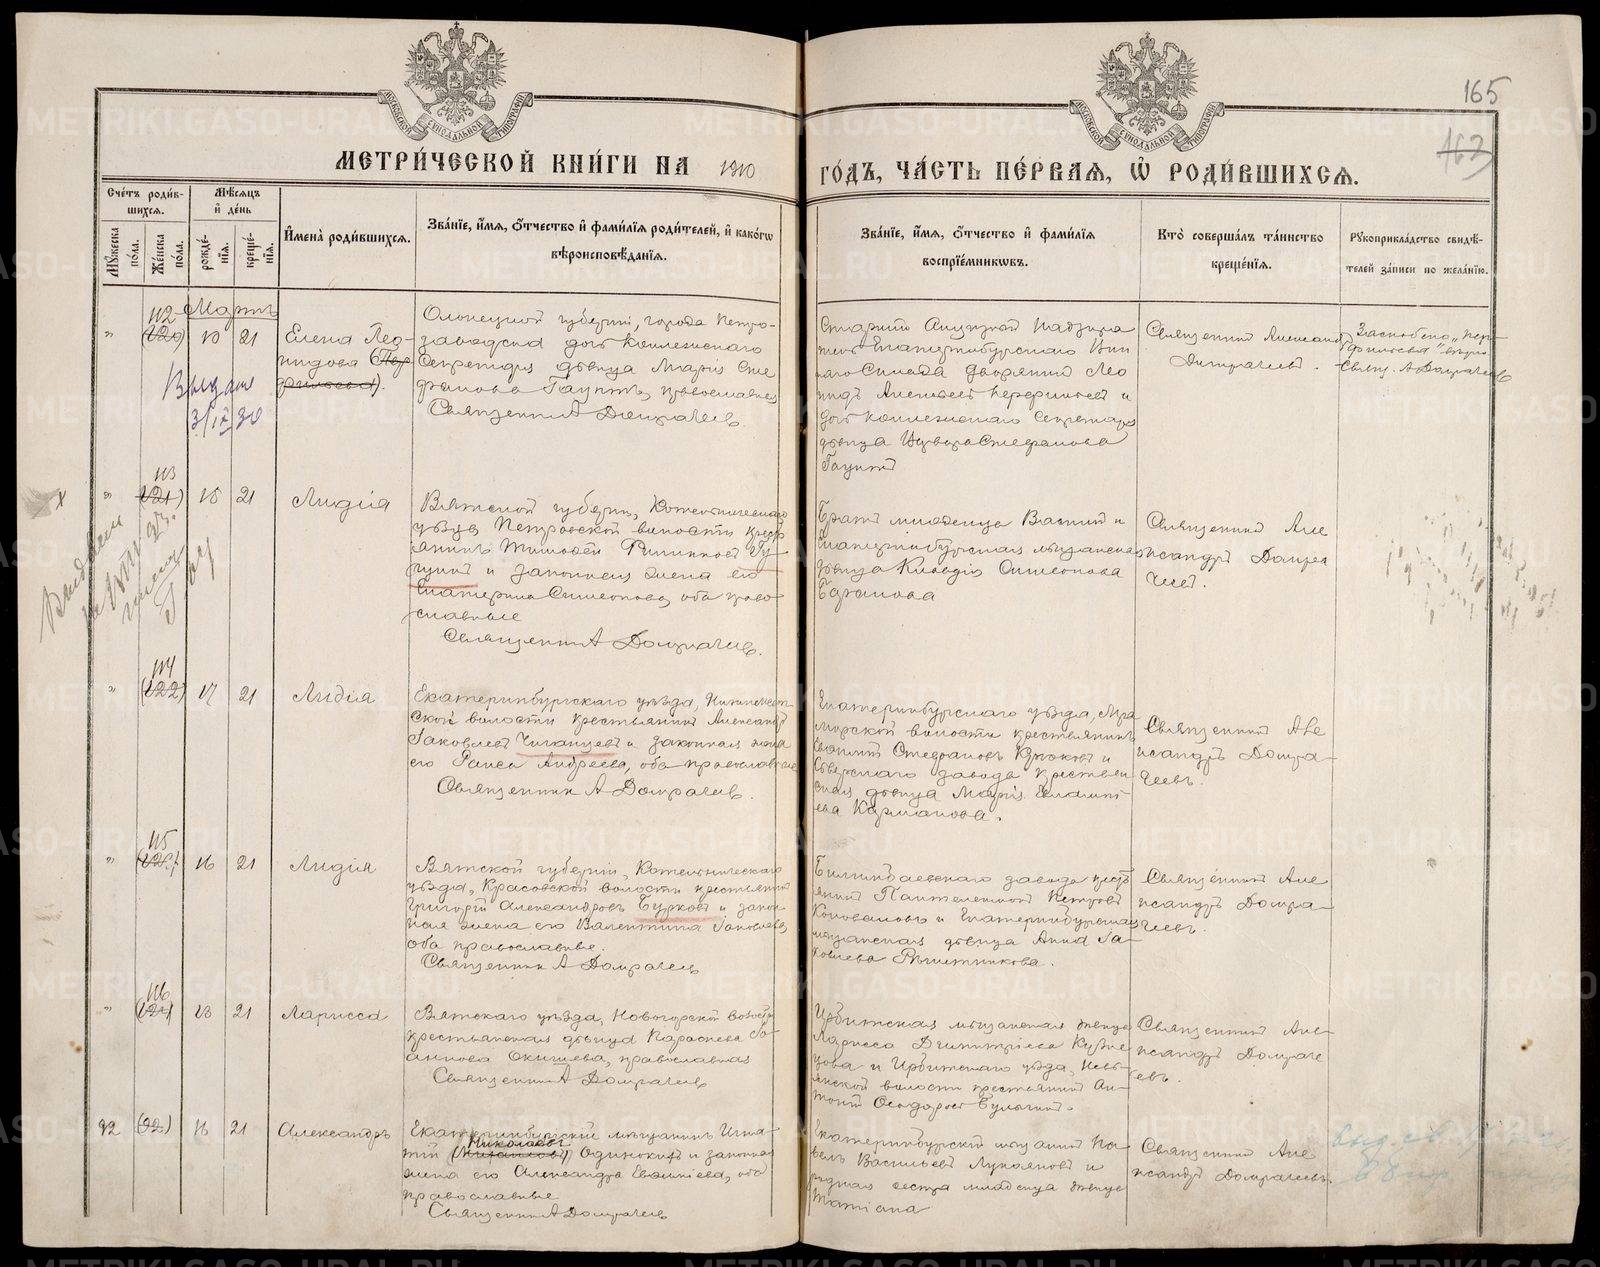 165
163
МОСКОВСКОЙ СѴНОДАЛЬНОЙ ТИПОГРАФІИ
МОСКОВСКОЙ СѴНОДАЛЬНОЙ ТИПОГРАФІИ
МЕТРИ́ЧЕСКОЙ КНИ́ГИ НА 1910
ГО́ДЪ, ЧА́СТЬ ПЕ́РВАѦ, Ѡ҆ РОДИ́ВШИХСѦ.
Сче́тъ роди́в-
шихсѧ.
Мꙋ́жеска
по́ла.
Же́нска
по́ла.
Мѣ́сѧцъ
и҆ де́нь
рожде́-
нїѧ.
креще́-
нїѧ.
И҆мена̀ роди́вшихсѧ.
Зва́нїе, и҆́мѧ, ѻ҆́тчество и҆ фами́лїѧ роди́телей, и҆ како́гѡ
вѣроисповѣ́данїѧ.
Зва́нїе, и҆́мѧ, ѻ҆́тчество и҆ фами́лїѧ
воспрїе́мникѡвъ.
Кто̀ соверша́лъ та́инство
креще́нїѧ.
Рꙋкоприкла́дство свидѣ́-
телей за́писи по жела́нїю.
Мартъ
112
(120) 10 21
Елена Лео-
нидова
Олонецкой губерніи, города Петро-
заводска дочь Коллежскаго
Секретаря девица Марія Сте
фанова Гауптъ, православная
Священникъ А Домрачевъ.
Старшій Акцизный Надзира
тель Екатеринбургскаго Вин
наго Склада дворянинъ Лео
нидъ Алексеевъ и
дочь Коллежскаго Секретаря
девица Стефанова
Гауптъ
Священникъ Александръ
Домрачевъ.
Свящ. А Домрачевъ
Выдано
3/IX 30
113
(121) 15 21
Лидія
Вятской губерніи, Котельническаго
уезда, Петровской волости крест
янинъ Тимофей Филипповъ
и законная жена его
Екатерина Симеонова, оба право
славные
Священникъ А Домрачевъ.
Братъ младенца Василій и
Екатеринбургская мещанская
девица Клавдія Симеонова
Баранова
Священникъ Але
ксандръ Домра
чевъ.
114
(122) 17 21
Лидія
Екатеринбургскаго уезда,
ской волости крестьянинъ Александръ
Іаковлевъ Чиганцевъ и законная жена
его Раиса Андреева, оба православные
Священникъ А Домрачевъ.
Екатеринбургскаго уезда, Мра
морской волости крестьянинъ
Стефановъ Крюковъ и
Северскаго завода крестьян
ская девица Марія
ева Карманова.
Священникъ Але
ксандръ Домра-
чевъ.
115
(123) 16 21
Лидія
Вятской губерніи, Котельническаго
уезда, Красовской волости крестьянинъ
Григорій Александровъ Бурковъ и закон
ная жена его Валентина Іаковлева,
оба православные.
Священникъ А Домрачевъ
Билимбаевскаго завода крест
янинъ Пантелеимонъ Петровъ
Коноваловъ и Екатеринбургская
мещанская девица Анна Іа-
ковлева Решетникова.
Священникъ Але
ксандръ Домра-
чевъ.
116
(124) 18 21
Ларисса
Вятскаго уезда, Новогорской волости
крестьянская девица Параскева Іо-
аннова Окишева, православная
Священникъ А Домрачевъ
Ирбитская мещанская девица
Ларисса Димитріева Кузне
цова и Ирбитскаго уезда, Невь-
янской волости крестьянинъ Ан-
тоній Ѳеодоровъ Булыгинъ.
Священникъ Але-
ксандръ Домраче
евъ.
92 (92) 18 21
Александръ
Екатеринбургскій мещанинъ Игна-
тій Николаевъ (Михаиловъ) Одинокихъ и законная
жена его Александра Евгеніева, оба
православные
Священникъ А Домрачевъ
Екатеринбургскій мещанинъ Па-
велъ Васильевъ Лукояновъ и
родная сестра младенца девица
Татіана
Священникъ Але
ксандръ Домрачевъ.
METRIKI.GASO-URAL.RU